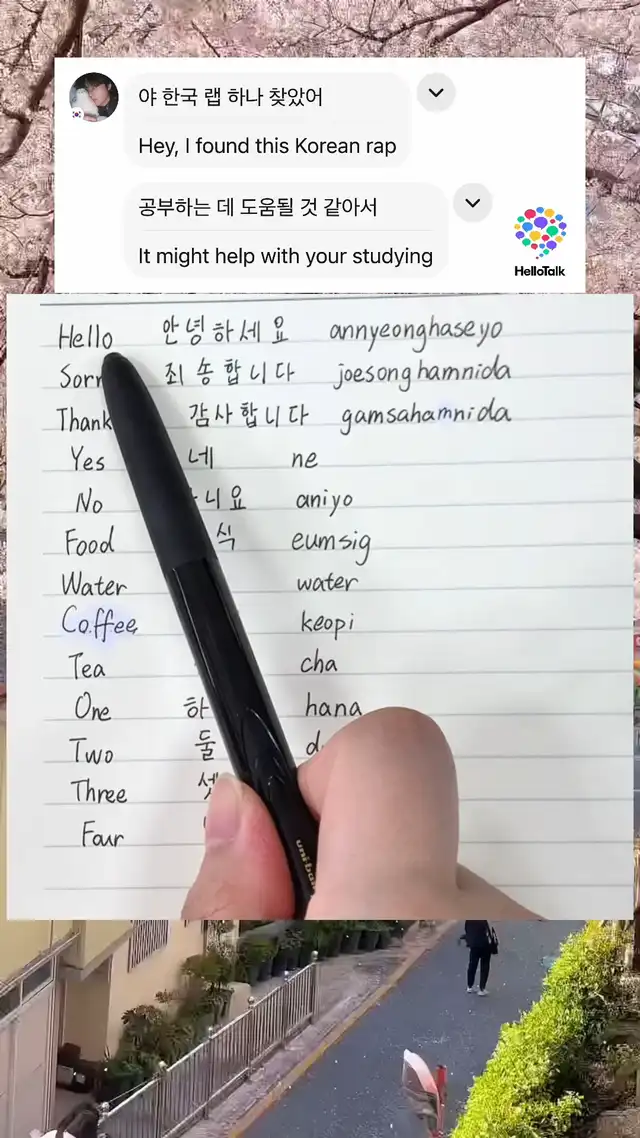 야 한국 랩 하나 찾았어
Hey, I found this Korean rap
공부하는 데 도움될 것 같아서
It might help with your studying
HelloTalk
Hello 안녕하세요 annyeonghaseyo
죄송합니다 joesonghamnida
Thank 감사합니다 gamsahamnida
Yes 네 ne
No aniyo
Food eumsig
Water water
Coffee keopi
Tea cha
One hana
Two 둘
Three
Four